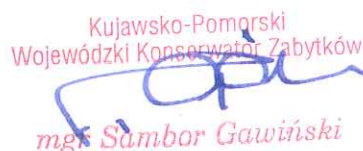 Kujawsko-Pomorski
Wojewódzki Konserwator Zabytków
mgr Sambor Gawiński